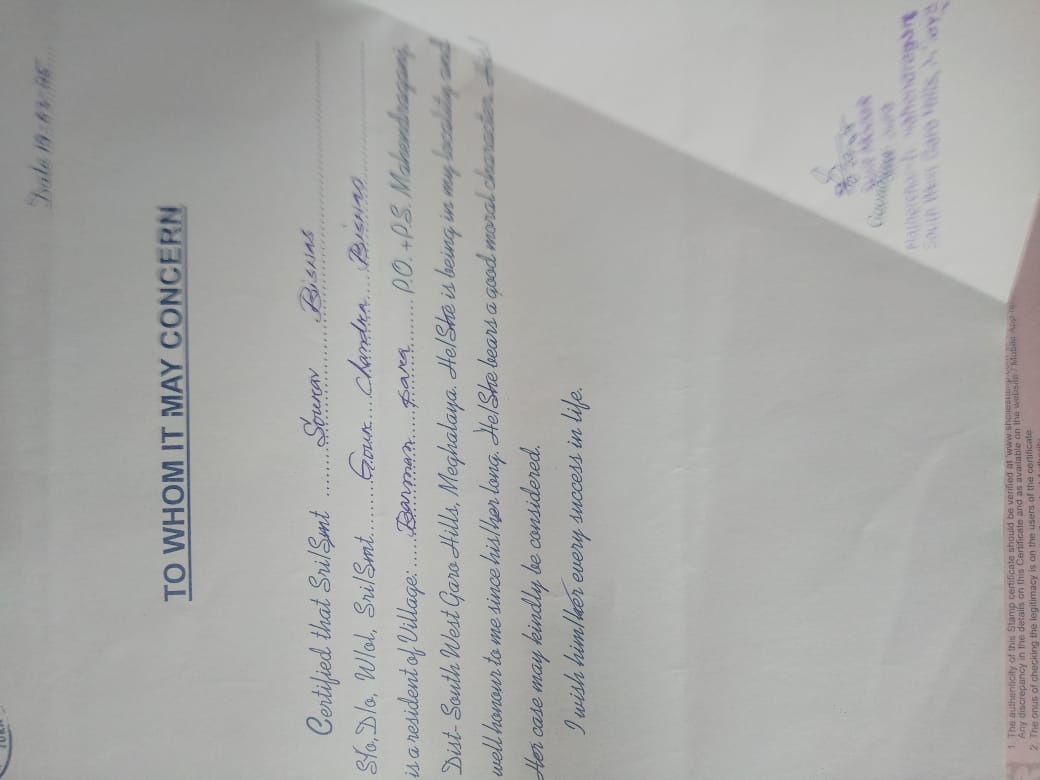 TO WHOM IT MAY CONCERN
Certified that Sri/Smt ........Sourav.....Biswas
S/o, D/o, W/o, Sri/Smt........Gour....Chandra....Biswas
is a resident of Village.....Barman....para......P.O. + P.S. Mahendraganj,
Dist- South West Garo Hills, Meghalaya. He/She is being in my locality and
well honour to me since his/her long. He/She bears a good moral character.
Her case may kindly be considered.
I wish him/her every success in life.
Mahendraganj
South West Garo Hills,
1. The authenticity of this Stamp certificate should be verified at
Any discrepancy in the details on this Certificate and as available on the website / Mobile App
2. The onus of checking the legitimacy is on the users of the certificate